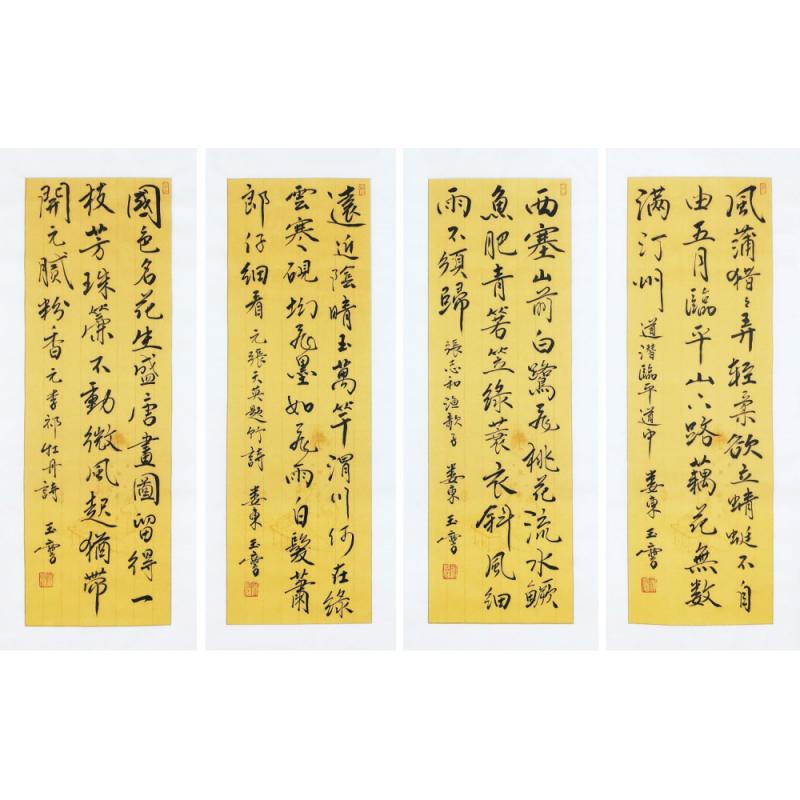 風蒲猎〻弄輕柔欲立蜻蜓不自
由五月臨平山下路藕花無數
滿汀州 道潛臨平道中 婁東玉
西塞山前白鷺飛桃花流水鱖
魚肥青箬笠綠蓑衣斜風細
雨不須歸 張志和漁歌子 婁東玉
遠近陰晴玉萬竿渭川何在綠
雲寒硯坳飛墨如飛雨白髮蕭
郎仔細看 元張天英題竹詩 婁東玉
國色名花生盛唐畫圖留得一
枝芳珠簾不動微風起猶帶
開元膩粉香 元李祁牡丹詩 玉